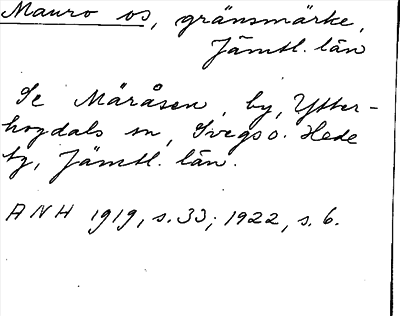 Mauro os, gränsmärke,
Jämtl. län
Se Märåsen, by, Ytter-
hogdals sn, Svegs o. Hede
tg, Jämtl. län.
ANH 1919, s. 33; 1922, s. 6.